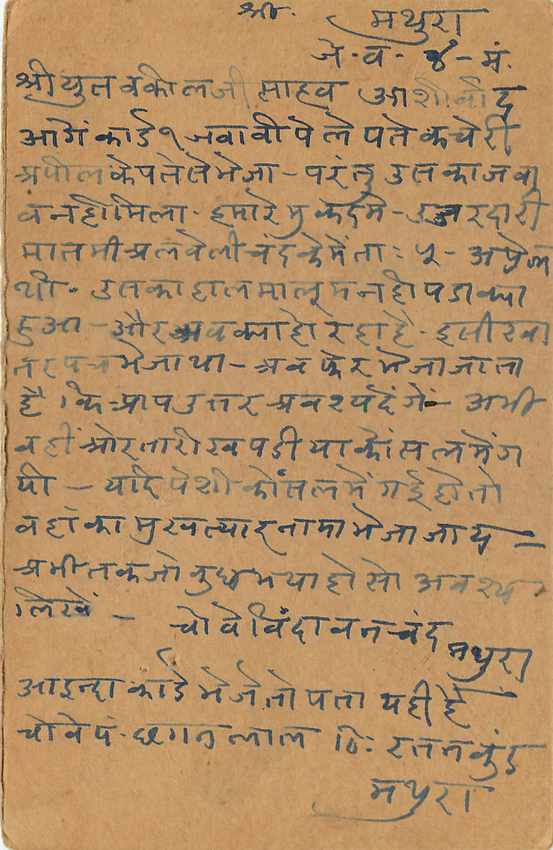 श्री. मथुरा
जे. व. ४ - मं.
श्रीयुत वकीलजी साहब आशीर्वाद
आगें कार्ड १ जवाबी पेले पते कचेरी
अपील के पते से भेजा - परंतु उसका जवा
व नही मिला. हमारे मुकदमे - उजरदारी
मातमी अलवेलीचंद के में ता: ५ - अप्रेल
थी. उसका हाल मालूम नही पडा क्या
हुआ - और अब क्या हो रहा है. इसी खा
तर पत्र भेजा था - अब फेर भेजा जाता
है कि आप उत्तर अवश्य देंगे - अभी
वहीं ओर तारीख पडी या कोंसल में ग
यी - यदि पेशी कोंसल में गई हो तो
वहां का मुखत्यारनामा भेजा जाय -
अभी तक जो कुछ भया हो सो अवश्य
लिखें - चोवे विंदावनचंद मथुरा
आइन्दा कार्ड भेजें तो पता यही है
चोवे पं. छगनलाल ठि: रतनकुंड
मथुरा